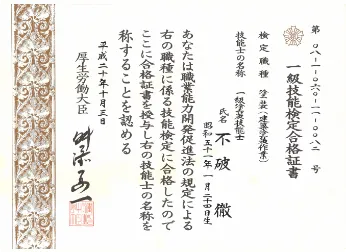 第 08-1-060-11-0082 号
一級技能検定合格証書
検定職種 塗装(建築塗装作業)
技能士の名称 一級塗装技能士
氏名 不破 徹
昭和五十一年一月二十四日生
あなたは職業能力開発促進法の規定による
右の職種に係る技能検定に合格したので
ここに合格証書を授与し右の技能士の名称を
称することを認める
平成二十年十月三日
厚生労働大臣